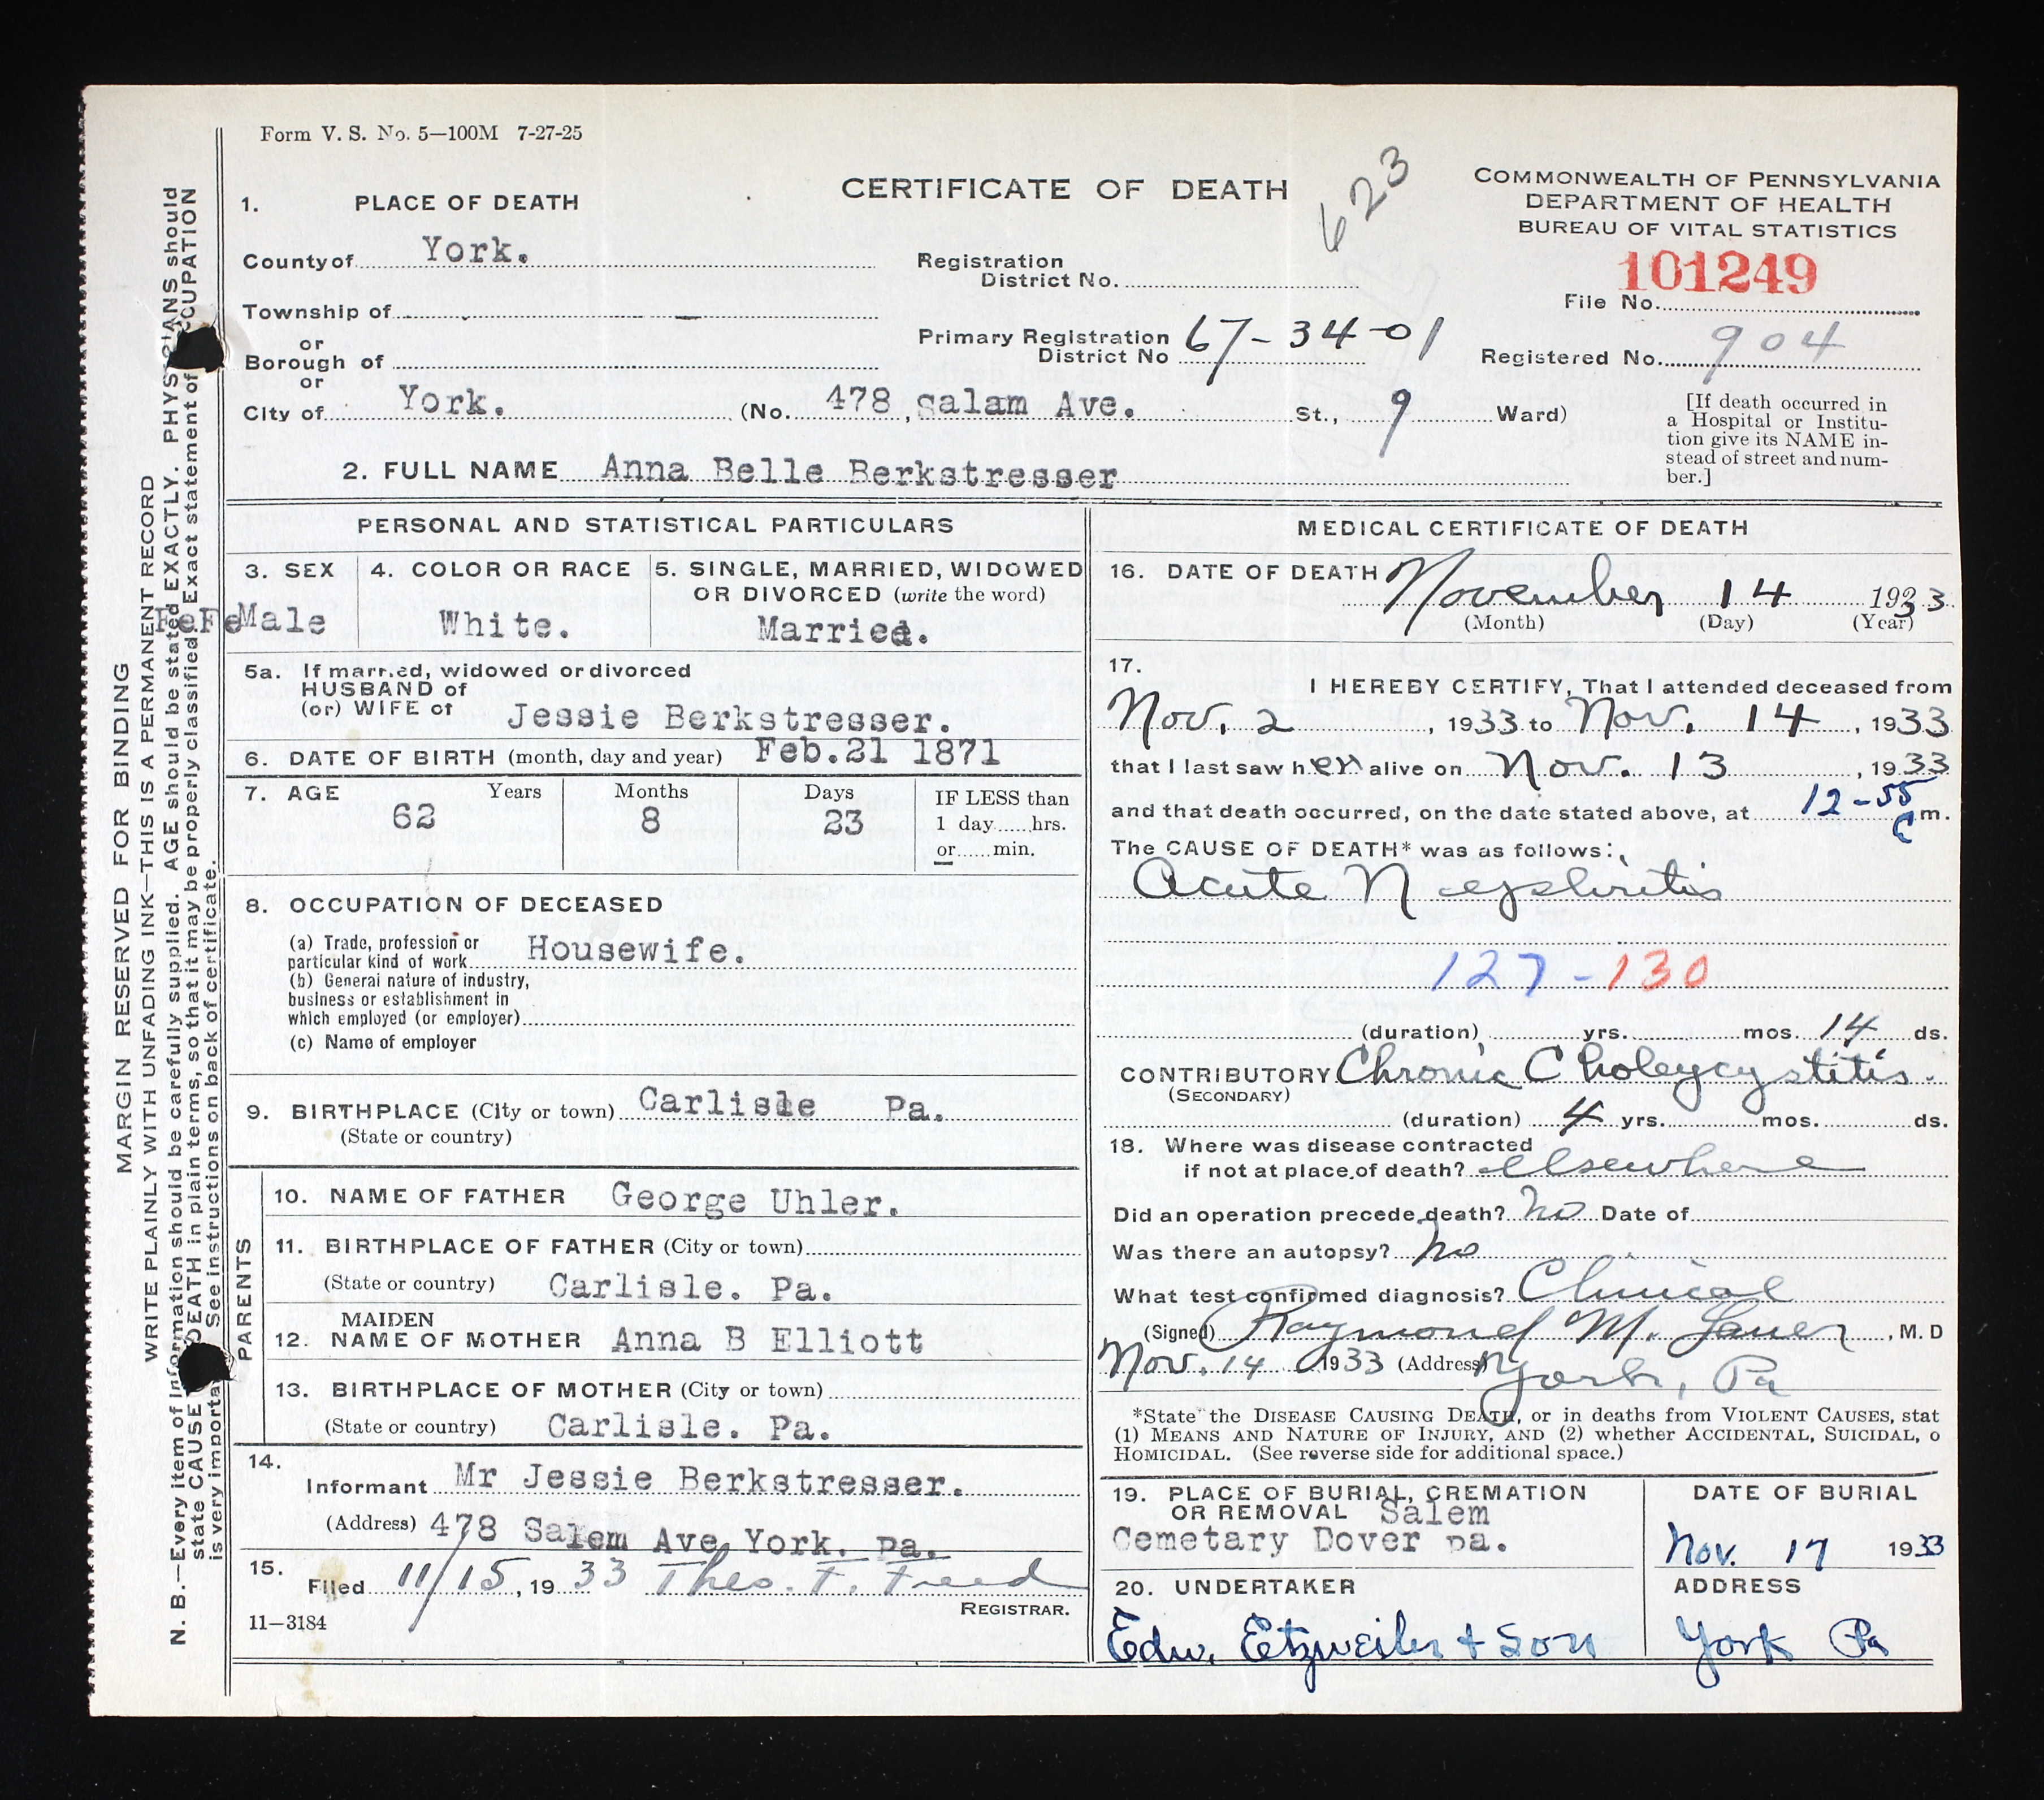 Form V. S. No. 5—100M 7-27-25
CERTIFICATE OF DEATH
623
COMMONWEALTH OF PENNSYLVANIA
DEPARTMENT OF HEALTH
BUREAU OF VITAL STATISTICS
101249
File No.
1. PLACE OF DEATH
County of York.
Registration
District No.
Township of —
or
Borough of
Primary Registration
District No 67-34-01
Registered No. 904
or
City of York. (No. 478 Salam Ave. St., 9 Ward)
[If death occurred in
a Hospital or Institu-
tion give its NAME in-
stead of street and num-
ber.]
2. FULL NAME Anna Belle Berkstresser
PERSONAL AND STATISTICAL PARTICULARS
3. SEX 4. COLOR OR RACE 5. SINGLE, MARRIED, WIDOWED
OR DIVORCED (write the word)
FeFeMale White. Married.
5a. If married, widowed or divorced
HUSBAND of
(or) WIFE of Jessie Berkstresser.
6. DATE OF BIRTH (month, day and year) Feb.21 1871
7. AGE Years Months Days IF LESS than
62 8 23 1 day......hrs.
or......min.
8. OCCUPATION OF DECEASED
(a) Trade, profession or
particular kind of work Housewife.
(b) General nature of industry,
business or establishment in
which employed (or employer)
(c) Name of employer
9. BIRTHPLACE (City or town) Carlisle Pa.
(State or country)
PARENTS
10. NAME OF FATHER George Uhler.
11. BIRTHPLACE OF FATHER (City or town)
(State or country) Carlisle. Pa.
MAIDEN
12. NAME OF MOTHER Anna B Elliott
13. BIRTHPLACE OF MOTHER (City or town)
(State or country) Carlisle. Pa.
14.
Informant Mr Jessie Berkstresser.
(Address) 478 Salem Ave York. Pa.
15.
Filed 11/15, 1933 Theo. F. Freed
REGISTRAR.
11—3184
MEDICAL CERTIFICATE OF DEATH
16. DATE OF DEATH November 14 1933
(Month) (Day) (Year)
17.
I HEREBY CERTIFY, That I attended deceased from
Nov. 2, 1933 to Nov. 14, 1933
that I last saw her alive on Nov. 13, 1933
and that death occurred, on the date stated above, at 12-55 m.
The CAUSE OF DEATH* was as follows:
Acute Nephritis
127-130
(duration) yrs. mos. 14 ds.
CONTRIBUTORY Chronic Choleycystitis.
(SECONDARY)
(duration) 4 yrs. mos. ds.
18. Where was disease contracted
if not at place of death? elsewhere
Did an operation precede death? no Date of
Was there an autopsy? no
What test confirmed diagnosis? Clinical
(Signed) Raymond M. Lauer, M. D
Nov. 14 1933 (Address) York, Pa
*State the DISEASE CAUSING DEATH, or in deaths from VIOLENT CAUSES, stat
(1) MEANS AND NATURE OF INJURY, AND (2) whether ACCIDENTAL, SUICIDAL, o
HOMICIDAL. (See reverse side for additional space.)
19. PLACE OF BURIAL, CREMATION
OR REMOVAL Salem
Cemetary Dover pa.
DATE OF BURIAL
Nov. 17 1933
20. UNDERTAKER
Edw. Etzweiler + Son
ADDRESS
York Pa
MARGIN RESERVED FOR BINDING
WRITE PLAINLY WITH UNFADING INK—THIS IS A PERMANENT RECORD
N. B.—Every item of information should be carefully supplied. AGE should be stated EXACTLY. PHYSICIANS should
state CAUSE DEATH in plain terms, so that it may be properly classified. Exact statement of OCCUPATION
is very importa See instructions on back of certificate.